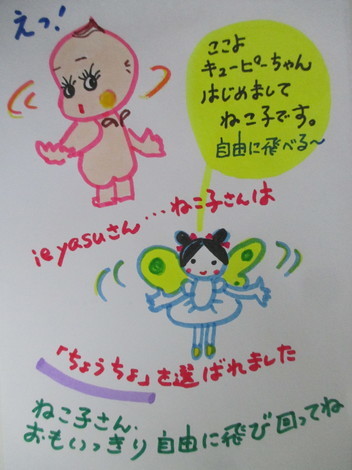 えっ!
ここよ
キューピーちゃん
はじめまして
ねこ子です。
自由に飛べる〜
ieyasuさん...ねこ子さんは
「ちょうちょ」を選ばれました
ねこ子さん.
おもいっきり自由に飛び回ってね